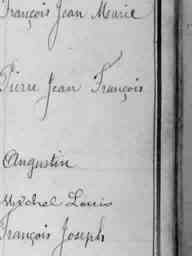 François Jean Marie
Pierre Jean François
Augustin
Michel Louis
François Joseph